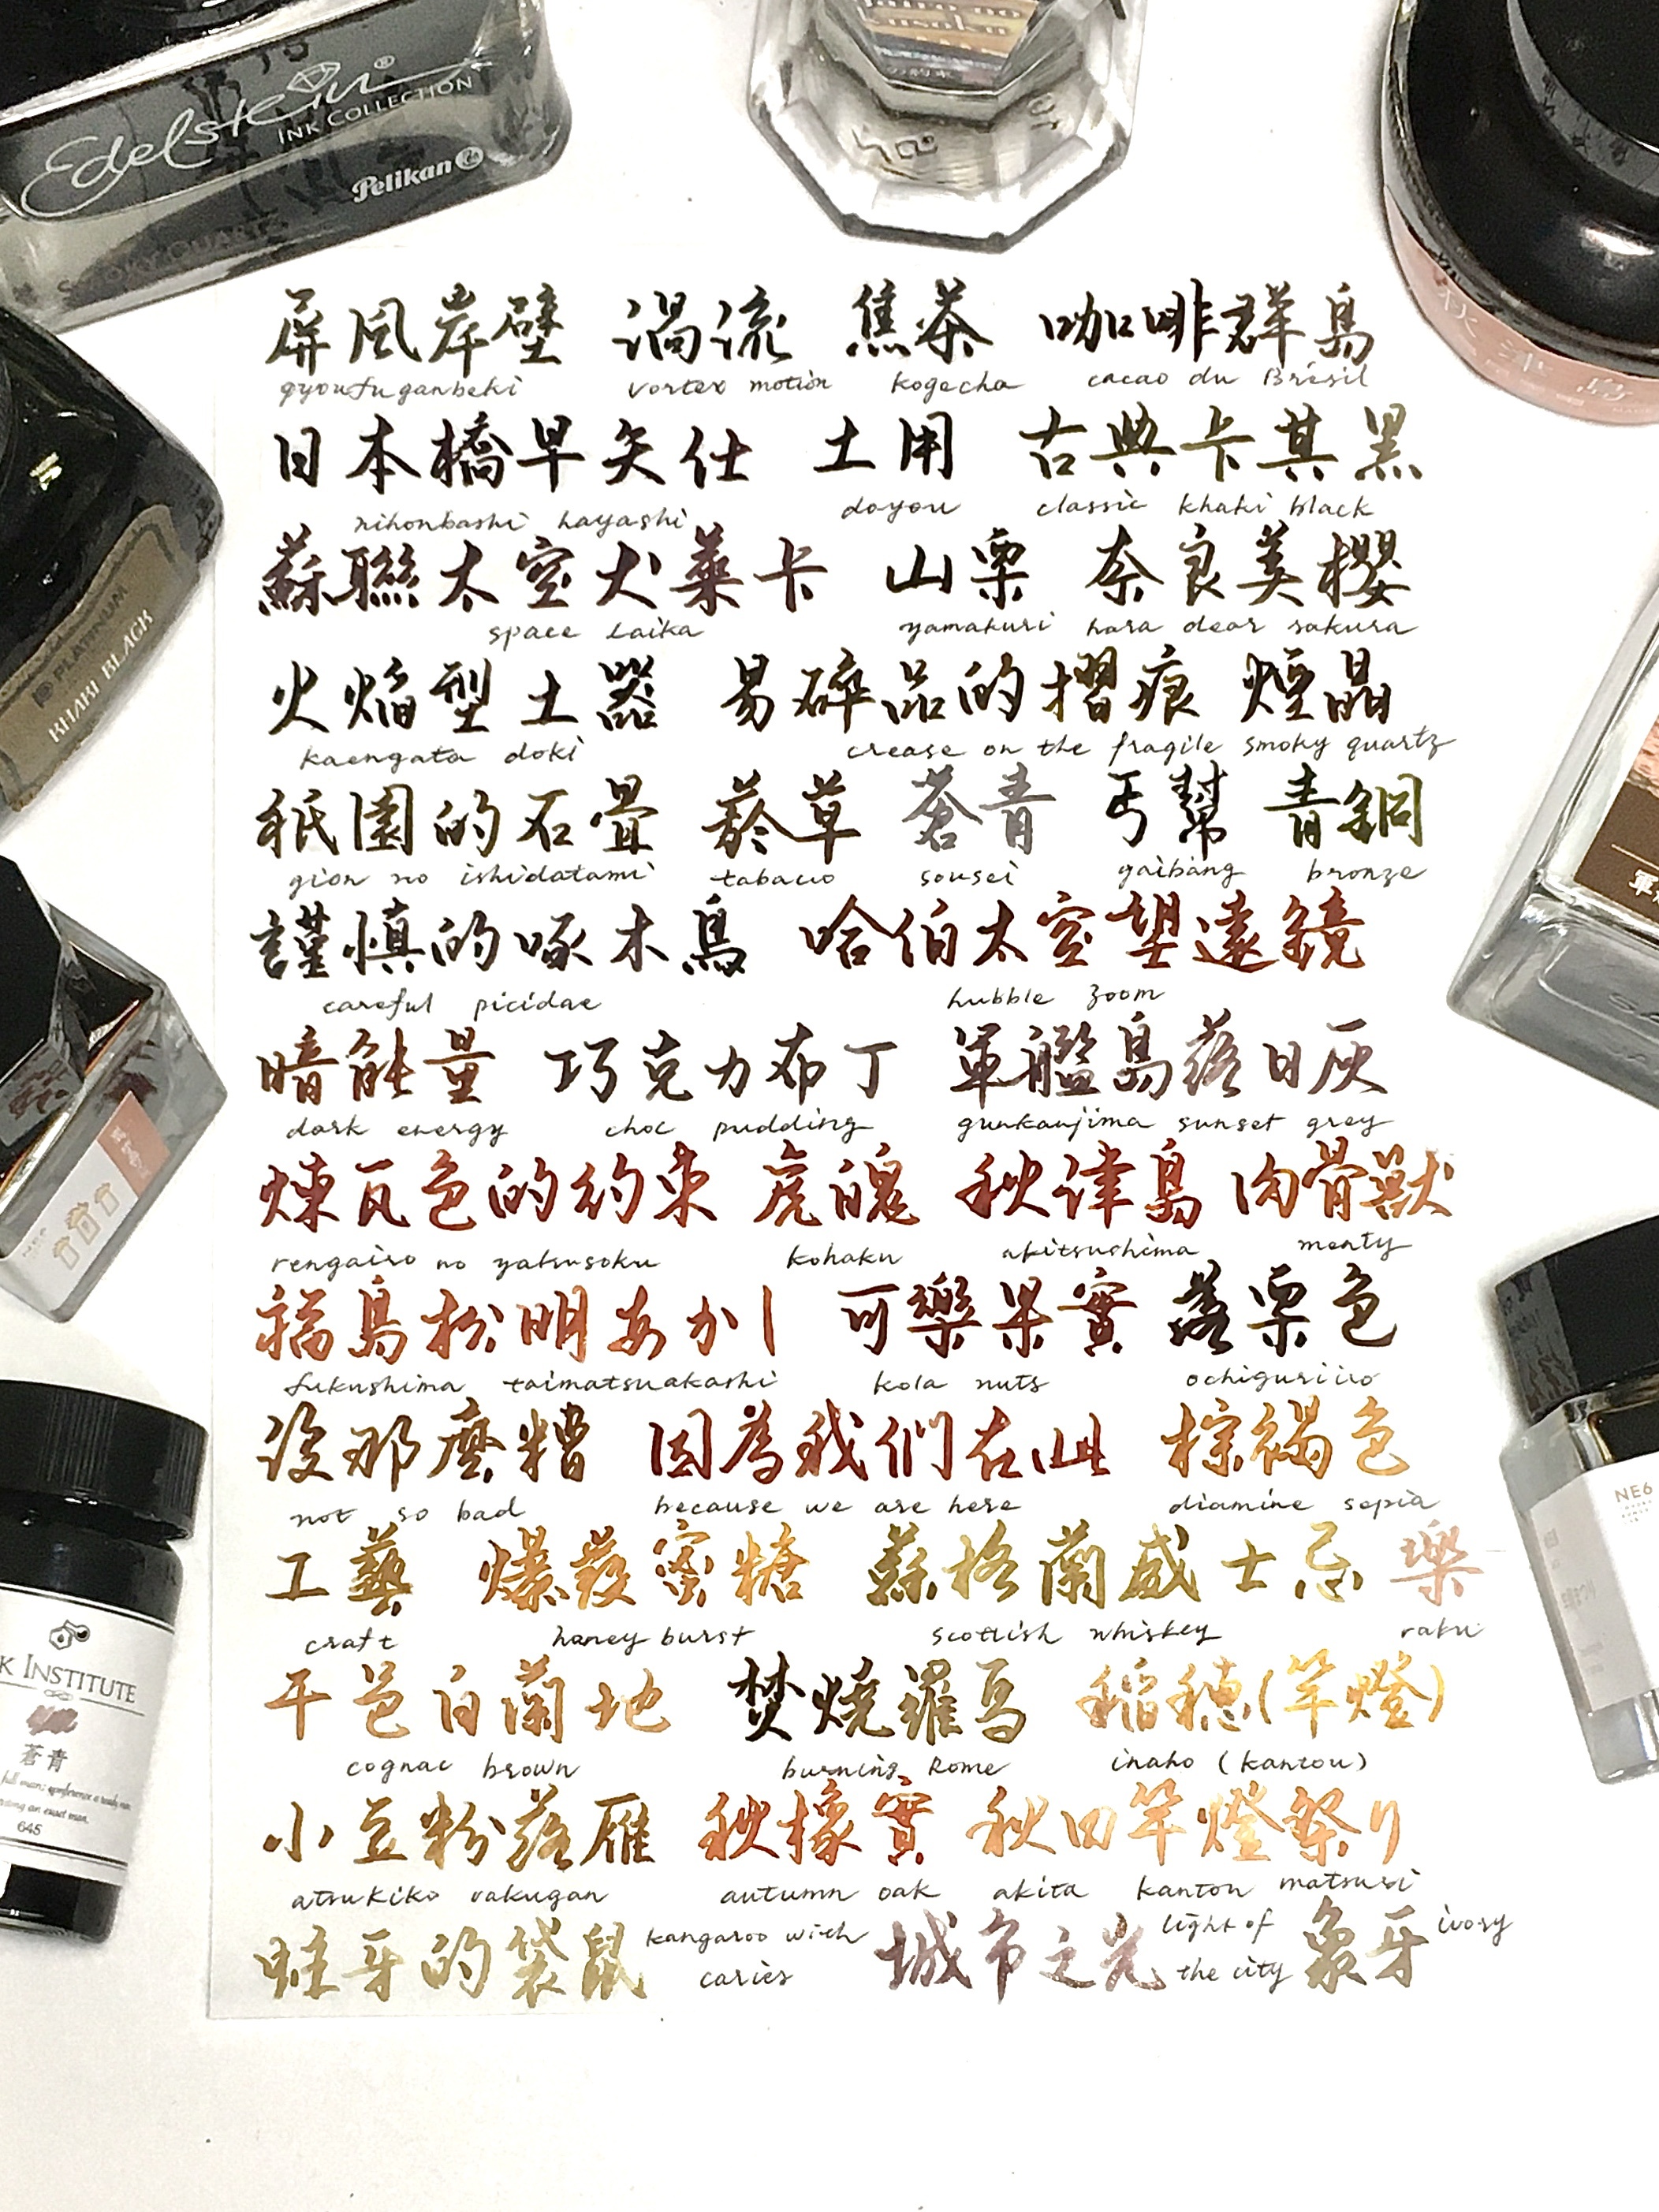 Edelstein®
INK COLLECTION
Pelikan
SMOKY QUARTZ
屏風岸壁 渦流 焦茶 咖啡群島
gyoufuganbeki vortex motion kogecha cacao du Brésil
日本橋早矢仕 土用 古典卡其黑
nihonbashi hayashi doyou classic khaki black
蘇聯太空犬萊卡 山栗 奈良美櫻
space laika yamakuri nara dear sakura
PLATINUM
KHAKI BLACK
火焰型土器 易碎品的摺痕 煙晶
kaengata doki crease on the fragile smoky quartz
祇園的石畳 菸草 蒼青 丐幫 青銅
gion no ishidatami tabacco sousei gaibang bronze
謹慎的啄木鳥 哈伯太空望遠鏡
careful picidae hubble zoom
暗能量 巧克力布丁 軍艦島落日灰
dark energy choc pudding gunkanjima sunset grey
煉瓦色的約束 虎魄 秋津島 肉骨獸
rengairo no yatsusoku kohaku akitsushima meaty
福島松明あかし 可樂果實 落栗色
fukushima taimatsuakashi kola nuts ochiguriiro
沒那麼糟 因為我們在此 棕褐色
not so bad because we are here diamine sepia
NE6
工藝 爆發蜜糖 蘇格蘭威士忌 樂
craft honey burst scottish whiskey raku
干邑白蘭地 焚燒羅馬 稲穂(竿燈)
cognac brown burning Rome inaho (kantou)
K INSTITUTE
蒼青
645
小豆粉落雁 秋橡實 秋田竿燈祭り
atsukiko rakugan autumn oak akita kantou matsuri
蛀牙的袋鼠 kangaroo with caries 城市之光 light of the city 象牙 ivory